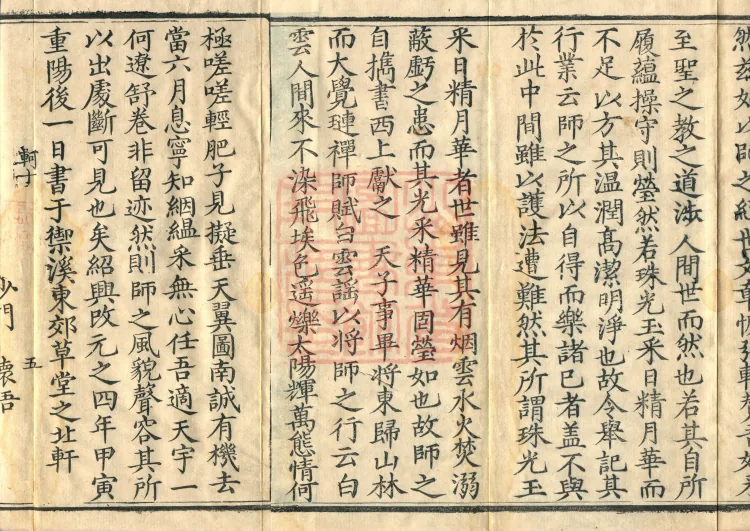 至聖之教之道法人間世而然也若其自所
履蘊操守則瑩然若珠光玉采日精月華而
不足以方其温潤高潔明淨也故令舉記其
行業云師之所以自得而樂諸己者盖不與
於此中間雖以護法遭難然其所謂珠光玉
采日精月華者世雖見其有烟雲水火焚溺
蔽虧之患而其光采精華固瑩如也故師之
自擕書西上獻之 天子事畢將東歸山林
而大覺璉禪師賦白雲謡以將師之行云白
雲人間來不染飛埃色遥爍太陽輝萬態情何
極嗟嗟輕肥子見擬垂天翼圖南誠有機去
當六月息寧知絪緼采無心任吾適天宇一
何遼舒卷非留迹然則師之風貌聲容其所
以出處斷可見也矣紹興改元之四年甲寅
重陽後一日書于禦溪東郊草堂之北軒
軻十
五
沙門 懐吾